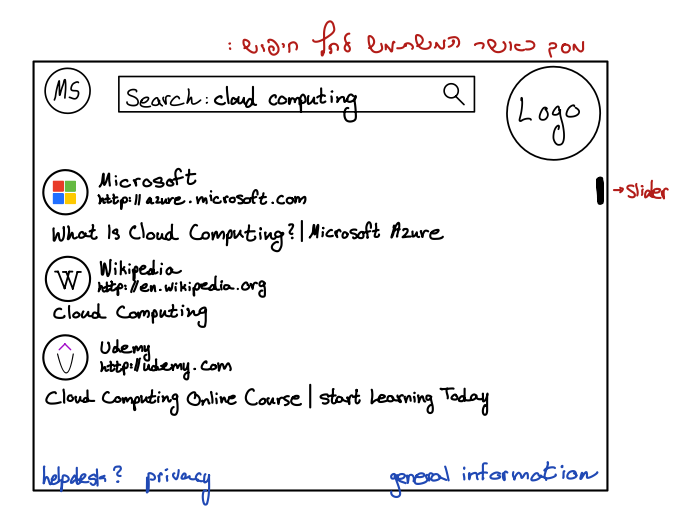 מסך כאשר המשתמש לחץ חיפוש :
MS
Search: cloud computing
Logo
Microsoft
http://azure.microsoft.com
→ Slider
What Is Cloud Computing? | Microsoft Azure
W
Wikipedia
http://en.wikipedia.org
Cloud Computing
Udemy
http://udemy.com
Cloud Computing Online Course | start Learning Today
helpdesk? privacy general information